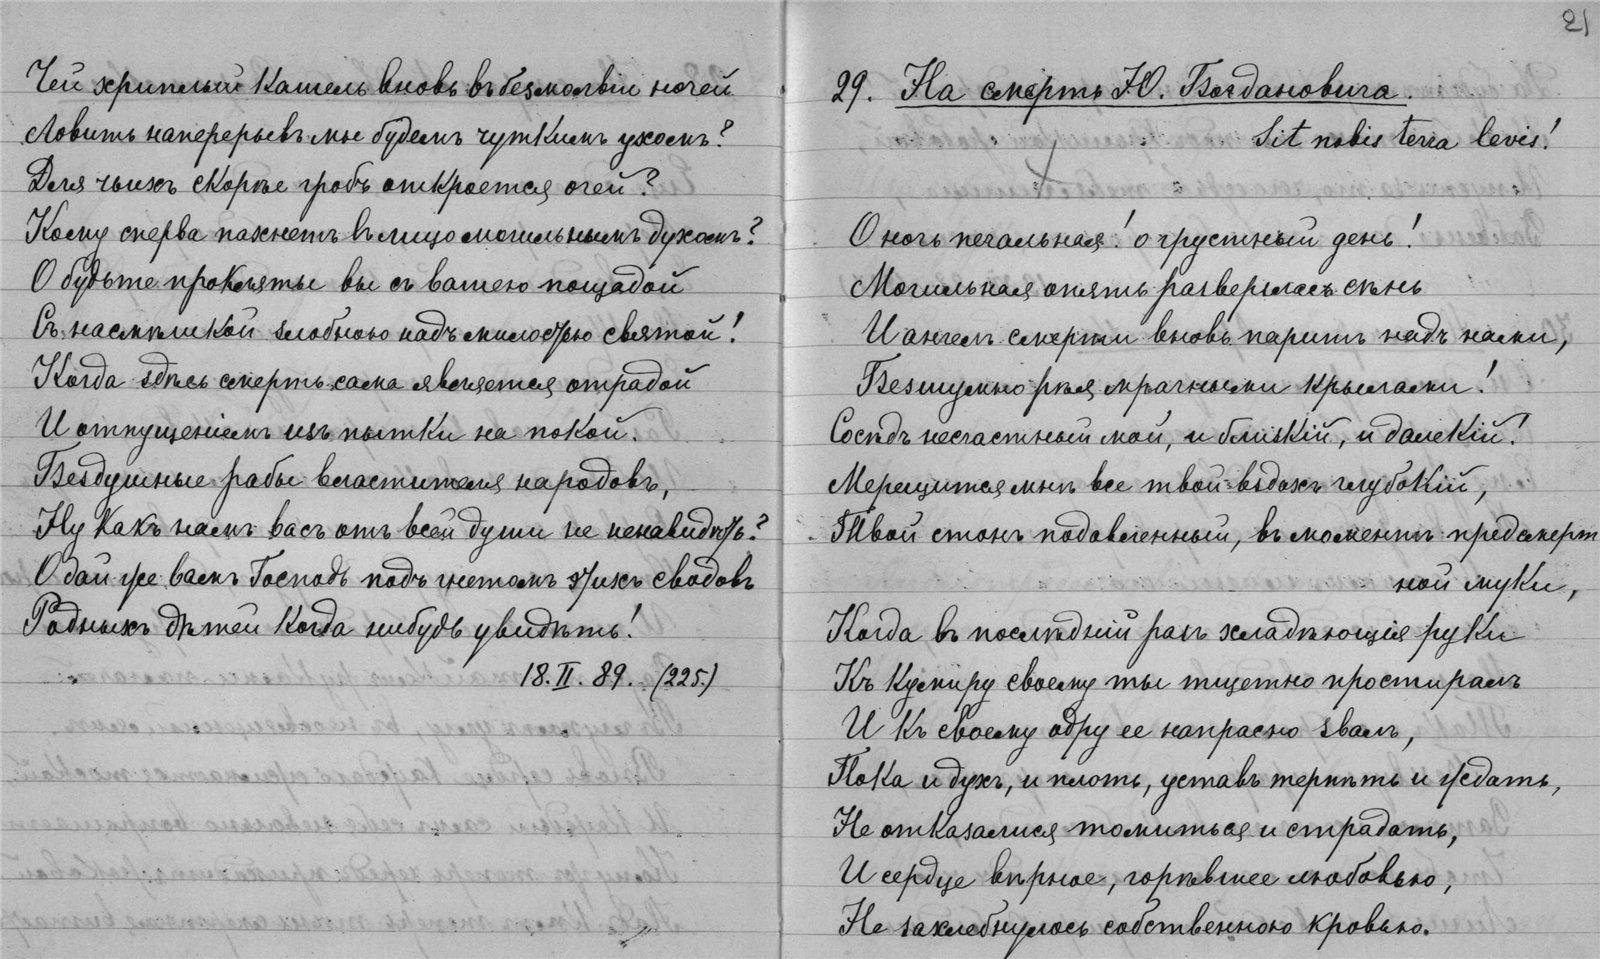 Чей хриплый кашель вновь въ безмолвіи ночей
Ловить наперерывъ мы будемъ чуткимъ ухомъ?
Для чьихъ скорѣе гробъ откроется очей?
Кому сперва пахнетъ въ лицо могильнымъ духомъ?
О будьте прокляты вы съ вашею пощадой
Съ насмѣшкой злобною надъ милостью святой!
Когда здѣсь смерть сама является отрадой
И отпущеніемъ изъ пытки на покой.
Бездушные рабы властителя народовъ,
Ну какъ намъ васъ отъ всей души не ненавидѣть?
О дай же вамъ Господь подъ гнетомъ этихъ сводовъ
Родныхъ дѣтей когда нибудь увидѣть!
18.II.89. (225.)
21
29. На смерть Ю. Богдановича.
Sit nobis terra levis!
О ночь печальная! о грустный день!
Могильная опять разверзлась сѣнь
И ангелъ смерти вновь паритъ надъ нами,
Безшумно рѣя мрачными крылами!
Сосѣдъ несчастный мой, и близкій, и далекій!
Мерещится мнѣ все твой вздохъ глубокій,
Твой стонъ подавленный, въ моментъ предсмерт
ной муки,
Когда въ послѣдній разъ хладѣющія руки
Къ кумиру своему ты тщетно простиралъ
И къ своему одру ее напрасно звалъ,
Пока и духъ, и плоть, уставъ терпѣть и ждать,
Не отказалися томиться и страдать,
И сердце вѣрное, горѣвшее любовью,
Не захлебнулось собственною кровью.